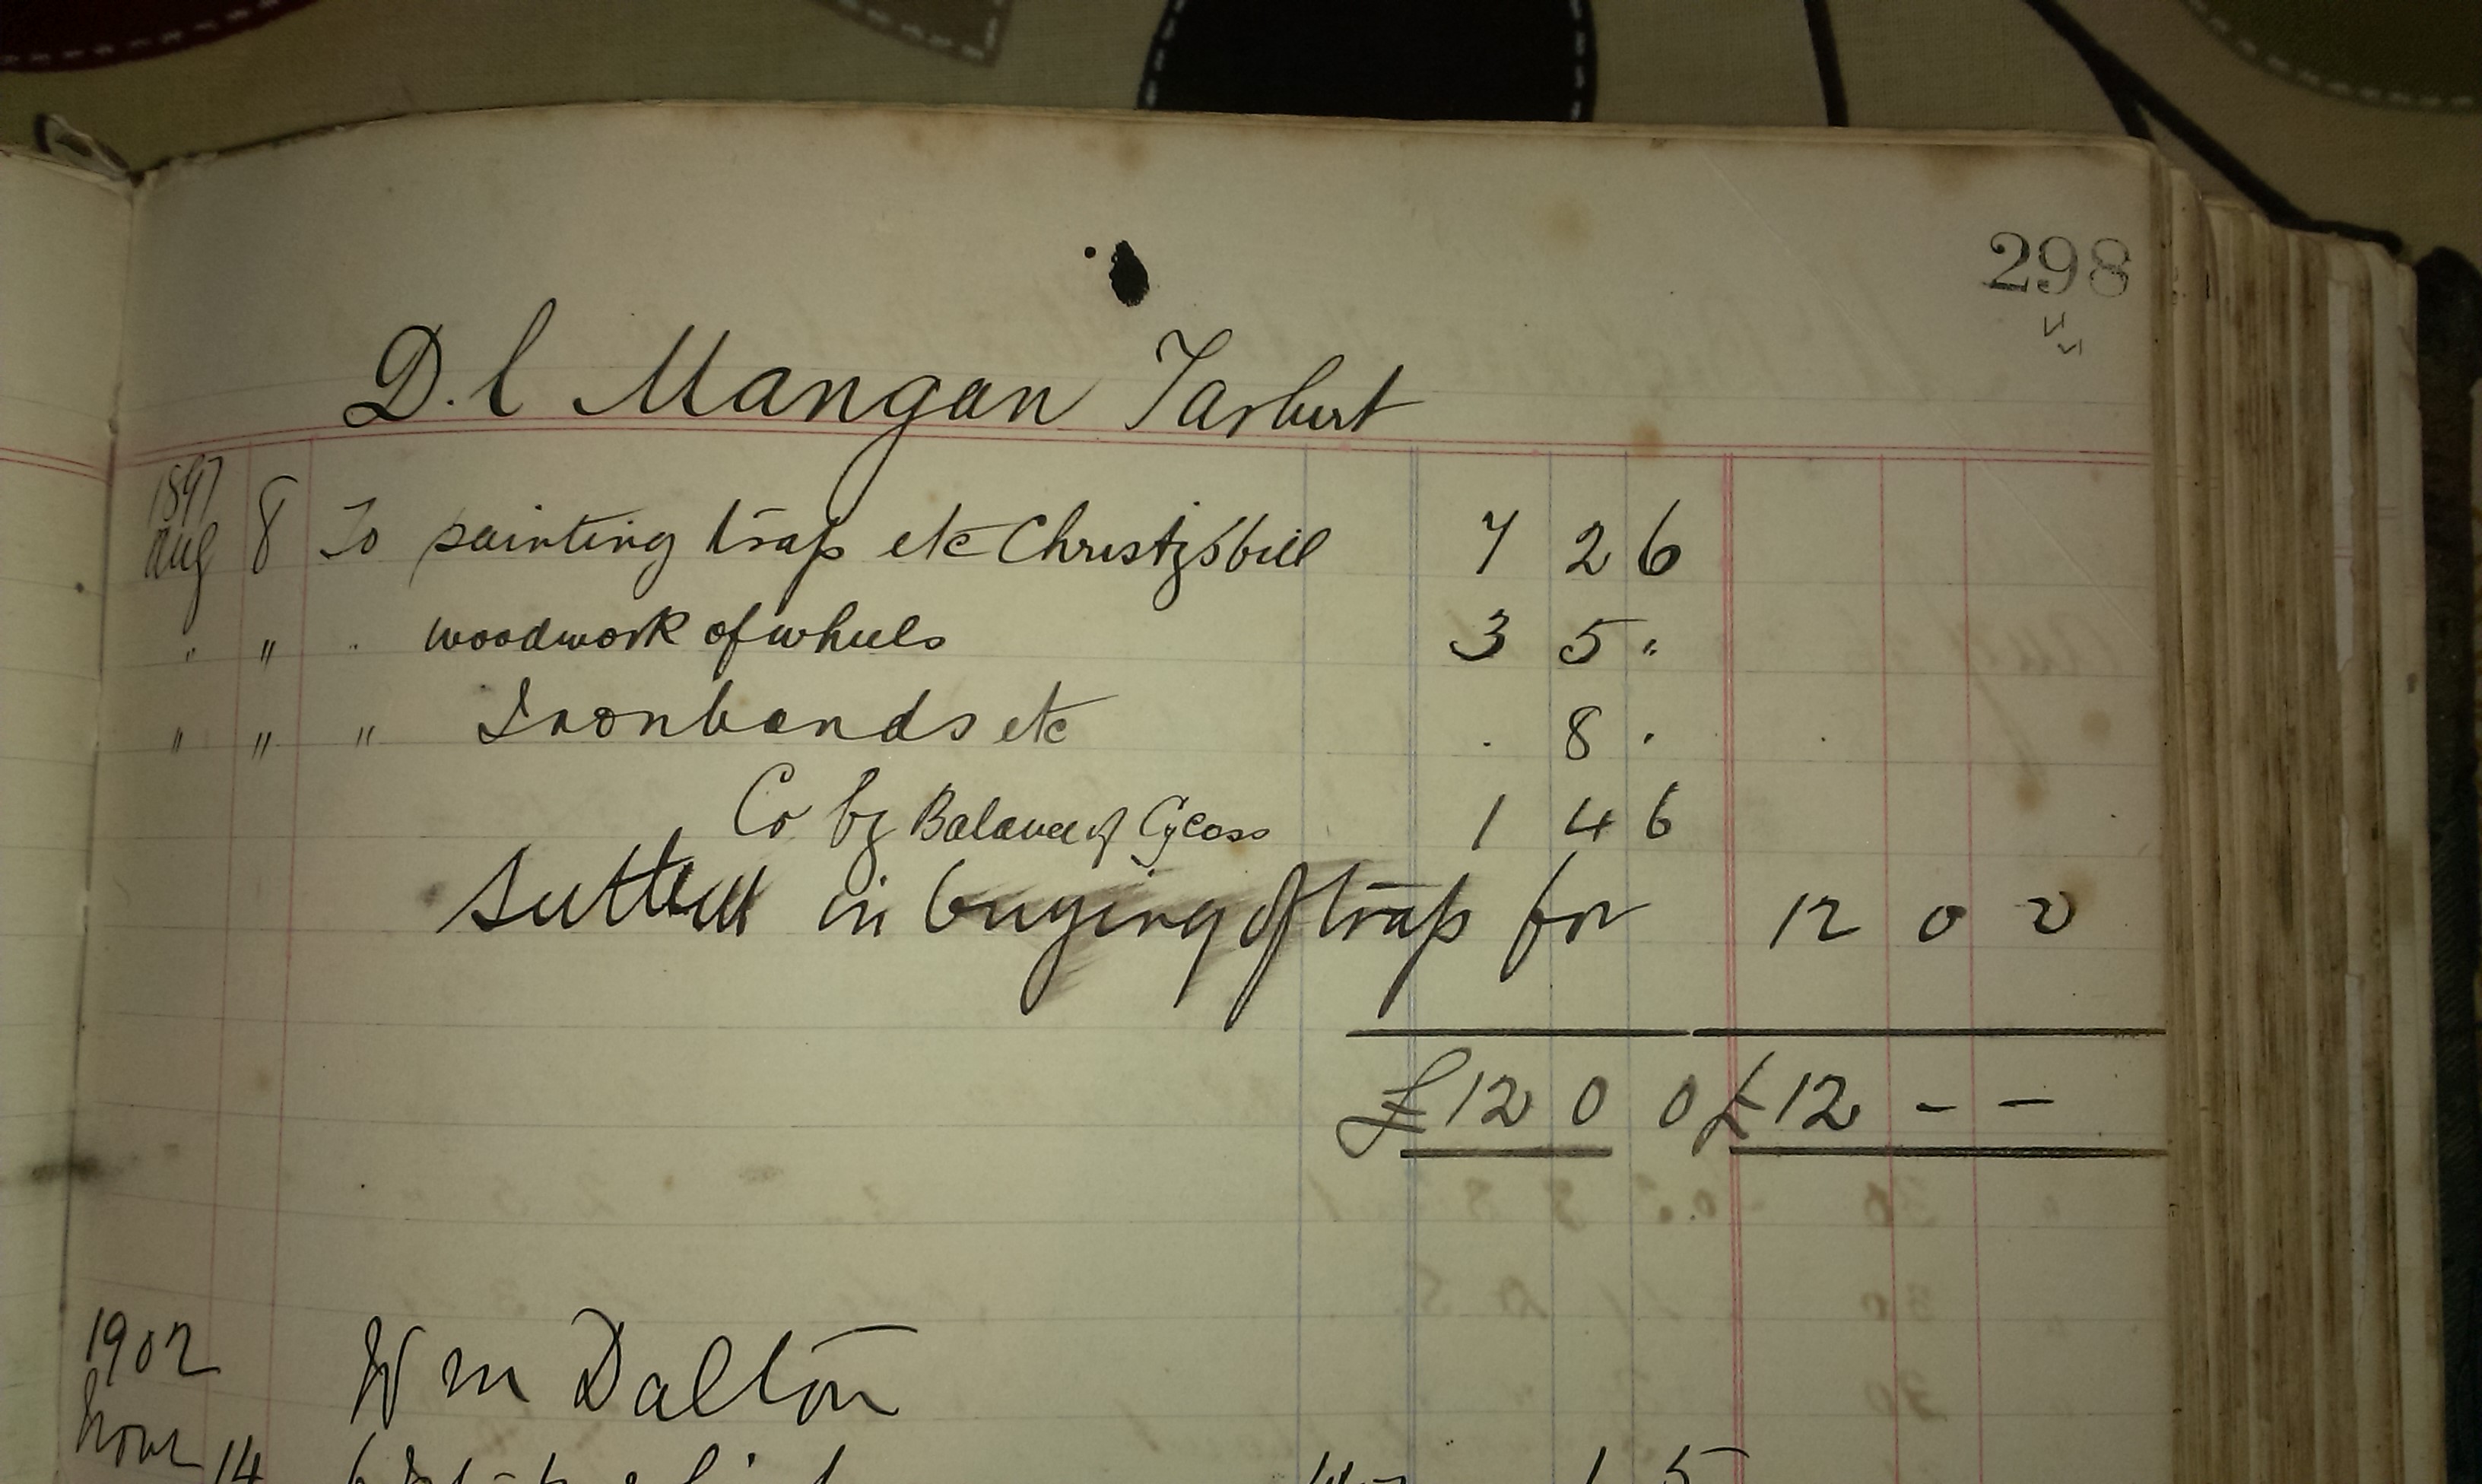 298
D. l Mangan Tarbert
1897
Aug 8 To painting trap etc Christys bill 7 2 6
" " . woodwork of wheels 3 5 "
" " " Iron bands etc . 8 .
Co by Balance of 1 4 6
in buying of trap for 12 0 0
£12 0 0 £12 - -
1902 Wm Dalton
14